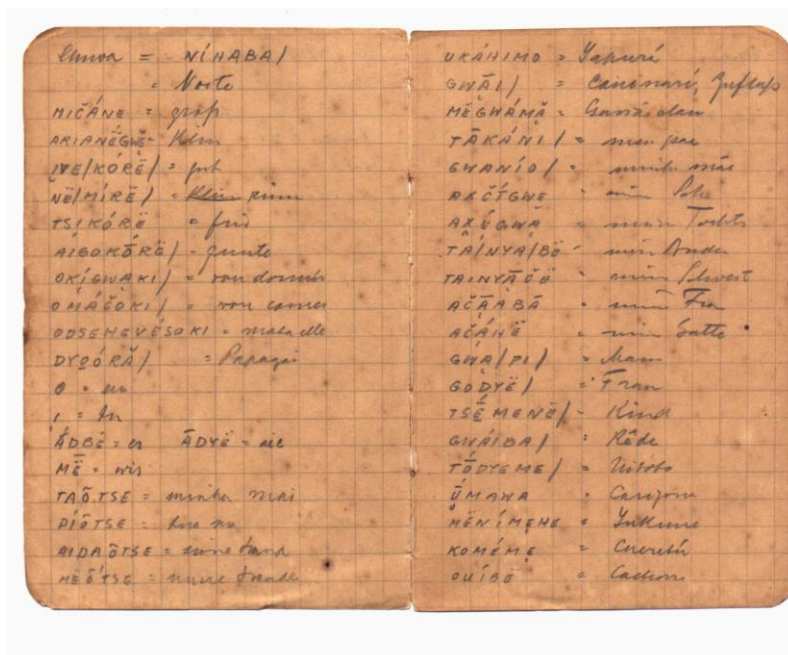 Chuva = NÍHABA/
= Noite
MIČÁNE = groß
ARIANËGWË = Klein
IVE/KÓRË/ = gut
NË/MÍRË/ =
TSIKÓRË = frio
AIBOKÕRË/ = quente
OKÍGWAKI/ = vou dormir
OMÁČOKI/ = vou comer
ODSEHEVÉSOKI = mata elle
DYOÓRÃ/ = Papagai
O = eu
I = du
ÁDBË = er ÁDYË = sie
MË = wir
TAÕTSE = minha mão
PÍÕTSE =
AIDAÕTSE = seine Hand
MEÕ'TSE = unsere Hände
UKÁHIMO = Yapurá
GWÃI/ = Cananarí, Zufluß
MËGWÁMÃ =
TÃKÁNI/ = meu pae
GWANÍO/ = minha mãe
AXČÍGWE = mein Sohn
AXÚGWA = meine Tochter
TA/NYA/BÖ = mein Bruder
TAINYÃČÖ = meine Schwest
AČÃABÁ = meine Frau
AČÁHË = mein Gatte
GWA/PI/ = Mann
GÕDYË/ = Frau
TSËMENË/ = Kind
GWÁIBA/ = Rêde
TÕDYEME/ = Uitoto
ÜMAWA = Carijona
MËNÍMEHE = Yukuna
KOMÉME = Cueretú
OUÍBÖ = Cachorro